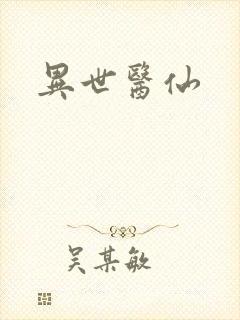 異世醫仙
吴某敏